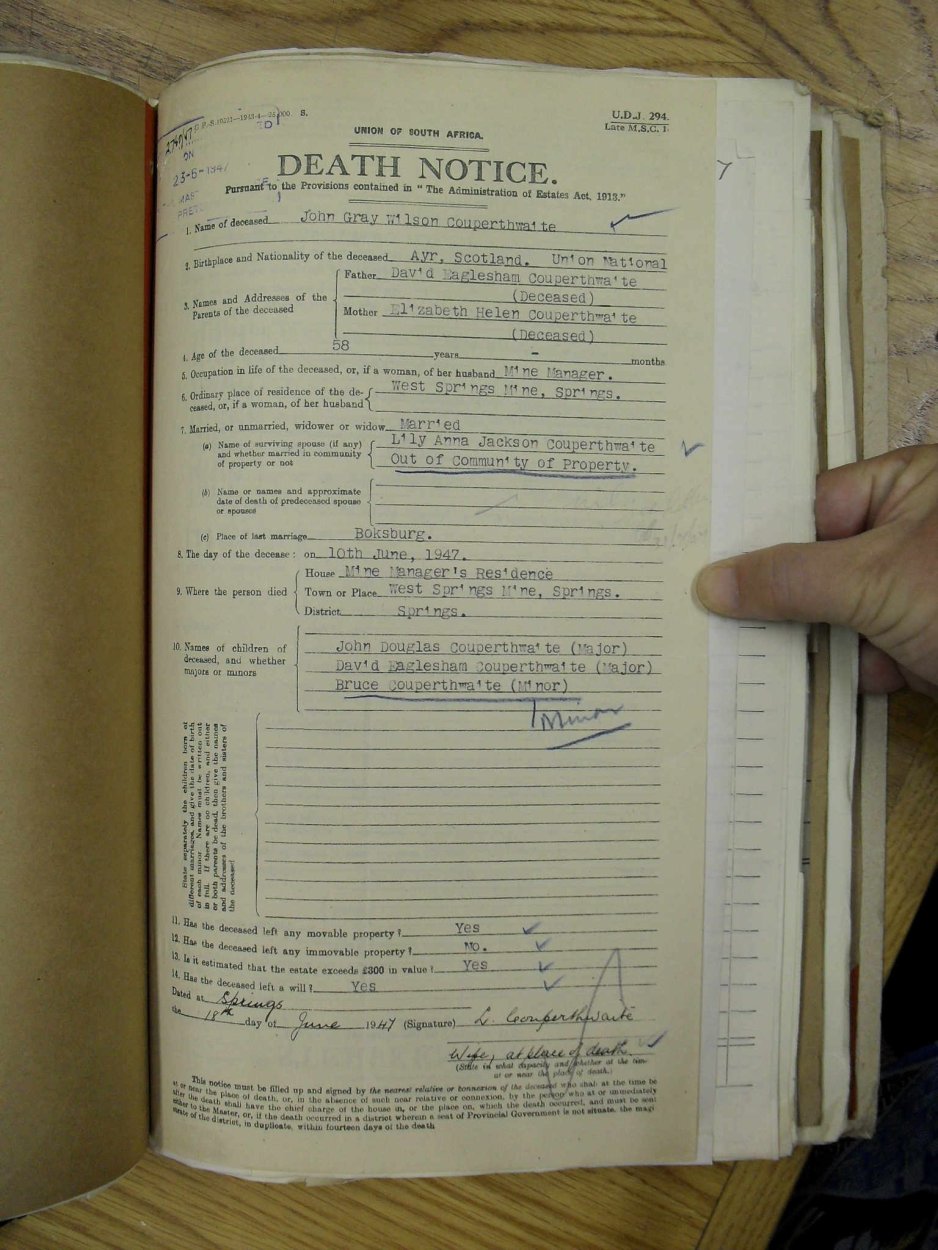 S.
U.D.J. 294.
Late M.S.C. 1
UNION OF SOUTH AFRICA.
2740/47
ON
23-6-1947
MAS
PRET
DEATH NOTICE.
Pursuant to the Provisions contained in "The Administration of Estates Act, 1913."
1. Name of deceased John Gray Wilson Couperthwaite
2. Birthplace and Nationality of the deceased Ayr, Scotland. Union National
3. Names and Addresses of the Parents of the deceased
Father David Eaglesham Couperthwaite
(Deceased)
Mother Elizabeth Helen Couperthwaite
(Deceased)
4. Age of the deceased 58 years - months
5. Occupation in life of the deceased, or, if a woman, of her husband Mine Manager.
6. Ordinary place of residence of the de-
ceased, or, if a woman, of her husband
West Springs Mine, Springs.
7. Married, or unmarried, widower or widow Married
(a) Name of surviving spouse (if any)
and whether married in community
of property or not
Lily Anna Jackson Couperthwaite
Out of Community of Property.
(b) Name or names and approximate
date of death of predeceased spouse
or spouses
(c) Place of last marriage Boksburg.
8. The day of the decease: on 10th June, 1947.
9. Where the person died
House Mine Manager's Residence
Town or Place West Springs Mine, Springs.
District Springs.
10. Names of children of
deceased, and whether
majors or minors
John Douglas Couperthwaite (Major)
David Eaglesham Couperthwaite (Major)
Bruce Couperthwaite (Minor)
1 Minor
State separately the children born of
different marriages, and give the date of birth
of each minor. Names must be written out
in full. If there are no children, and either
or both parents be dead, then give the names
and addresses of the brothers and sisters of
the deceased
11. Has the deceased left any movable property? Yes
12. Has the deceased left any immovable property? No.
13. Is it estimated that the estate exceeds £300 in value? Yes
14. Has the deceased left a will? Yes
Dated at Springs
the 18th day of June 1947 (Signature) L. Couperthwaite
Wife, at place of death.
(State in what capacity and whether at the time
at or near the place of death.)
This notice must be filled up and signed by the nearest relative or connexion of the deceased who shall at the time be
at or near the place of death, or, in the absence of such near relative or connexion, by the person who at or immediately
after the death shall have the chief charge of the house in, or the place on, which the death occurred, and must be sent
either to the Master, or, if the death occurred in a district wherein a seat of Provincial Government is not situate, the magi
strate of the district, in duplicate, within fourteen days of the death
7